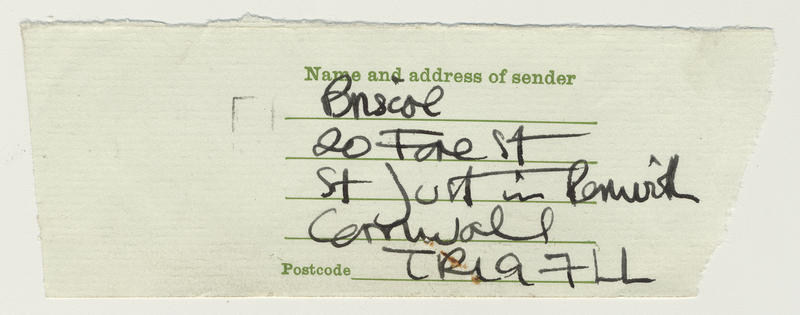 Name and address of sender
Briscoe
20 Fore St
St Just in Penwith
Cornwall
Postcode TR19 7LL